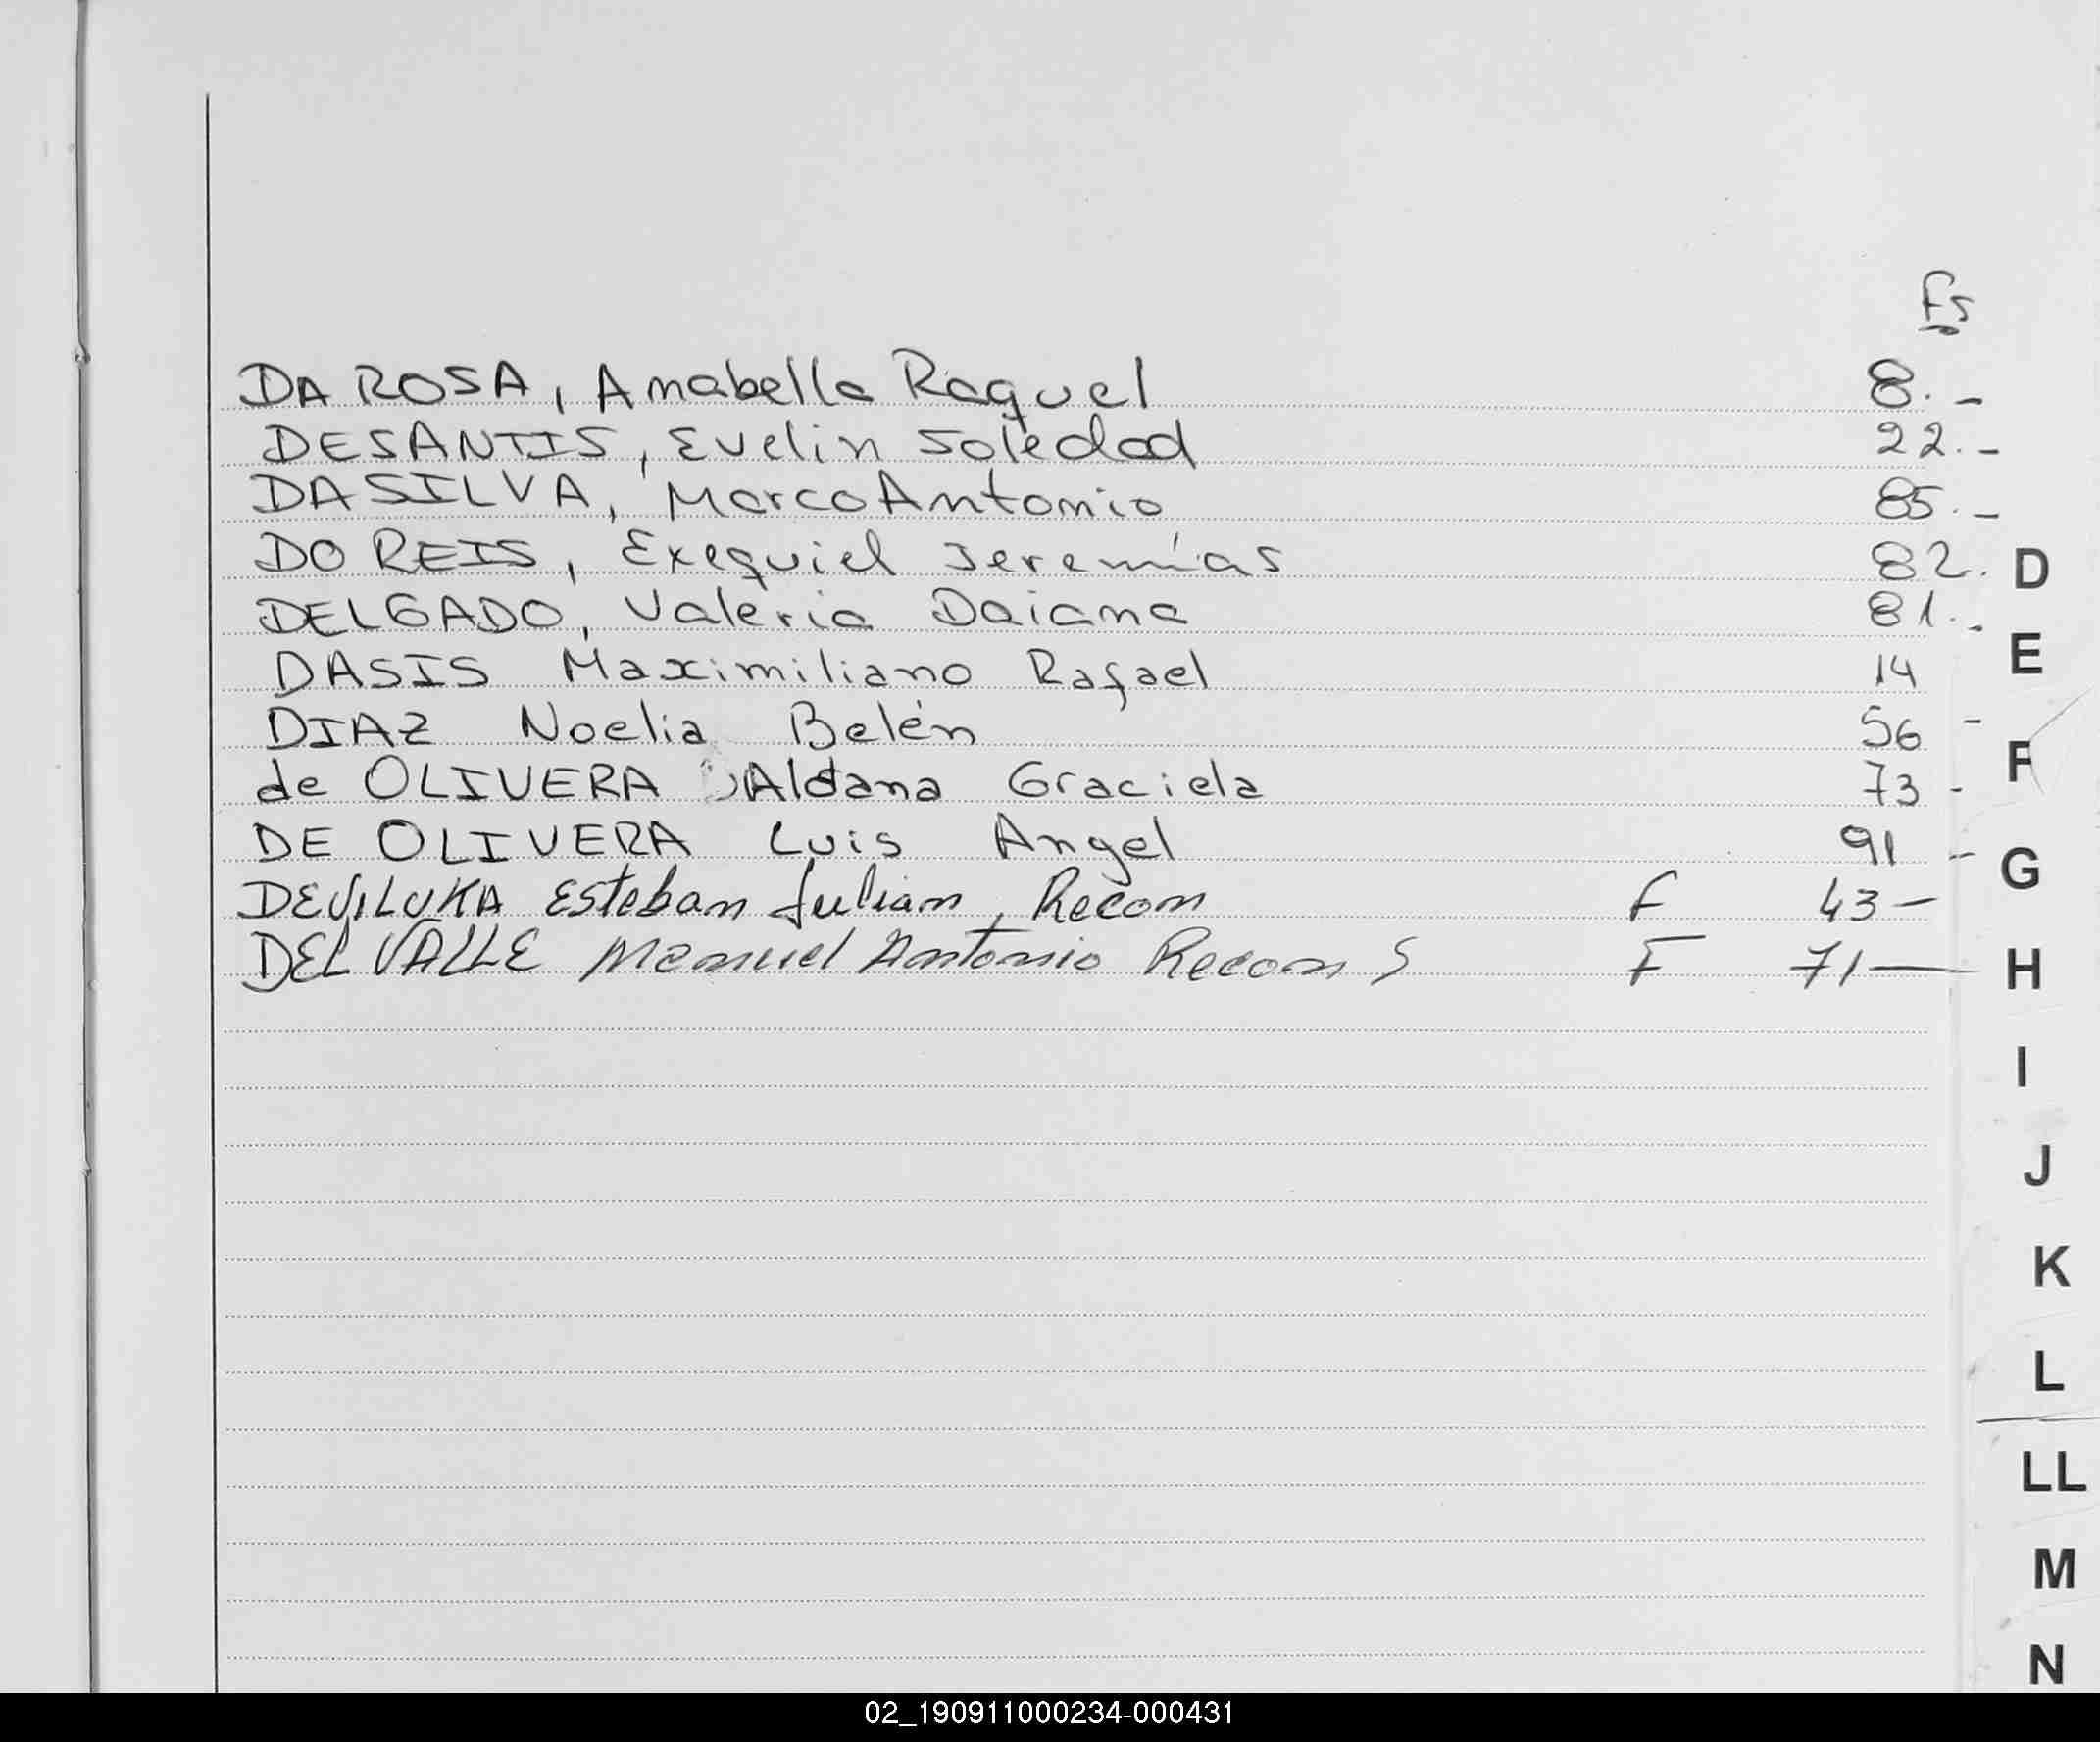 Fs
DA ROSA, Anabella Raquel 8.-
DESANTIS, Evelin Soledad 22.-
DA SILVA, Marco Antonio 85.-
DO REIS, Exequiel Jeremías 82.
DELGADO, Valeria Daiana 81.-
DASIS Maximiliano Rafael 14
DIAZ Noelia Belén 56 -
de OLIVERA Aldana Graciela 73 -
DE OLIVERA Luis Angel 91 -
Esteban Julian, Recon F 43 -
DEL VALLE Manuel Antonio Recon S F 71 -
D
E
F
G
H
I
J
K
L
LL
M
N
02_190911000234-000431